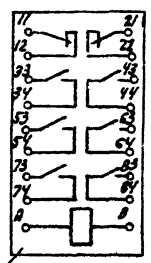 11 21
12 22
33 43
34 44
53 63
54 64
73 83
74 84
A B